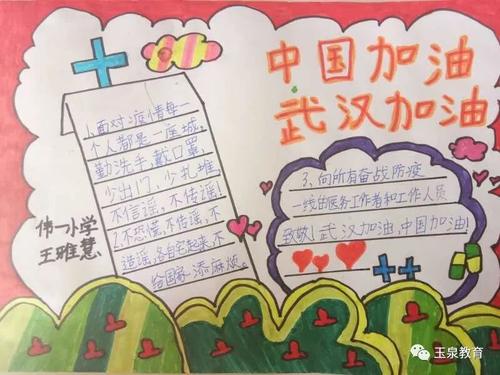 中国加油
武汉加油
1、面对疫情每一
个人都是一座城，
勤洗手，戴口罩，
少出门，少扎堆，
不信谣，不传谣！
2.不恐慌，不传谣，不
造谣，各自宅起来，不
给国家添麻烦。
3、向所有奋战防疫
一线的医务工作者和工作人员
致敬！武汉加油，中国加油！
伟一小学
王雅慧
玉泉教育